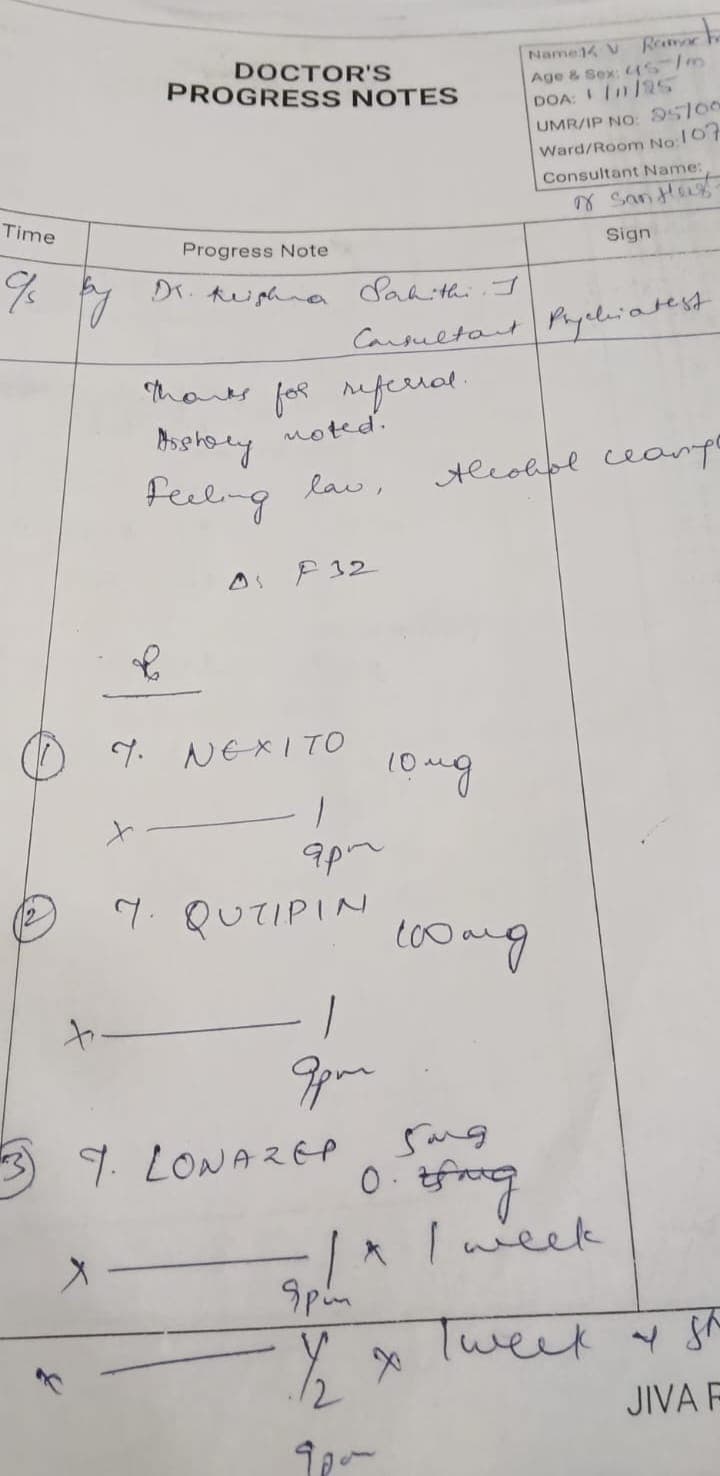 DOCTOR'S
PROGRESS NOTES
Name: K V
Age & Sex: 45/m
DOA: 1/11/25
UMR/IP NO: 25100
Ward/Room No: 107
Consultant Name:
Time
Progress Note
Sign
c/s by Dr. Krishna Sahithi. J
Consultant Psychiatrist
Thanks for referral.
noted.
Feeling low, Alcohol
Δ: F 32
℞
① T. NEXITO 10 mg
x — 1
9pm
② T. QUTIPIN 100 mg
x — 1
9pm
③ T. LONAZEP 0. 5mg
x — 1 x 1 week
9pm
x — 1/2 x 1 week
9pm
JIVA